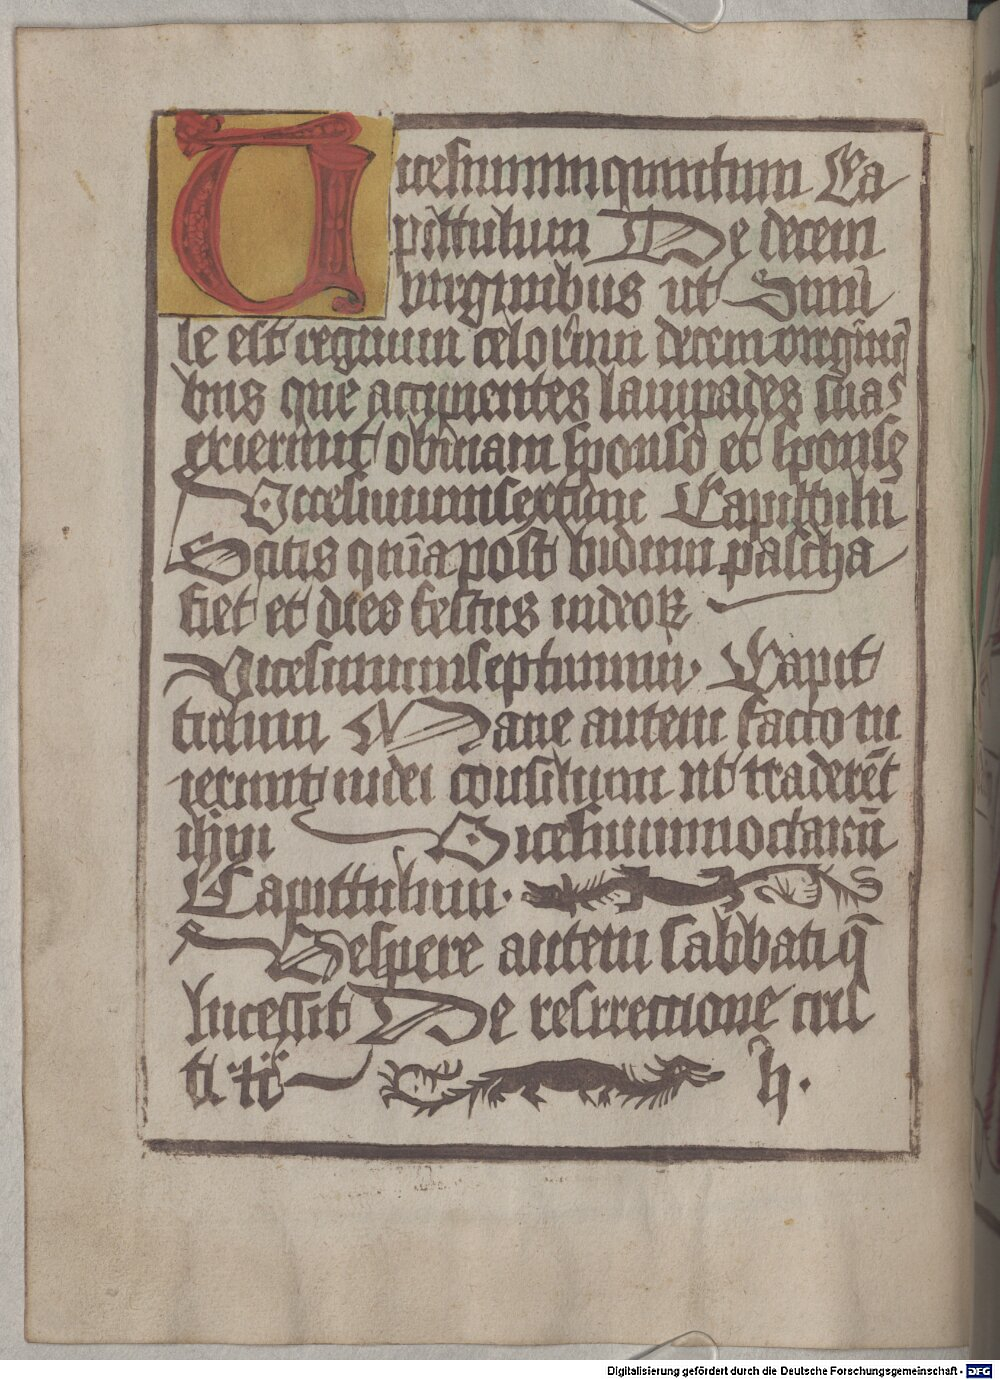 Uicesimumquintum Ca
pittulum De decem
virginibus ut Simi
le est regnum celorum decem virgini
bus que accipientes lampades suas
exierunt obuiam sponso et sponse
Vicesimumsextum Capittulū
Scitis quīa post biduum pascha
fiet et dies festus iudeoꝝ
Vicesimumseptimum Capit
tulum Mane autem facto in
ierunt iudei consilium ut traderēt
ihm Vicesimumoctauū
Capittulum.
Vespere autem sabbati q̄
lucessit De resrrectione cris
ti. tc̄ h.
Digitalisierung gefördert durch die Deutsche Forschungsgemeinschaft - DFG